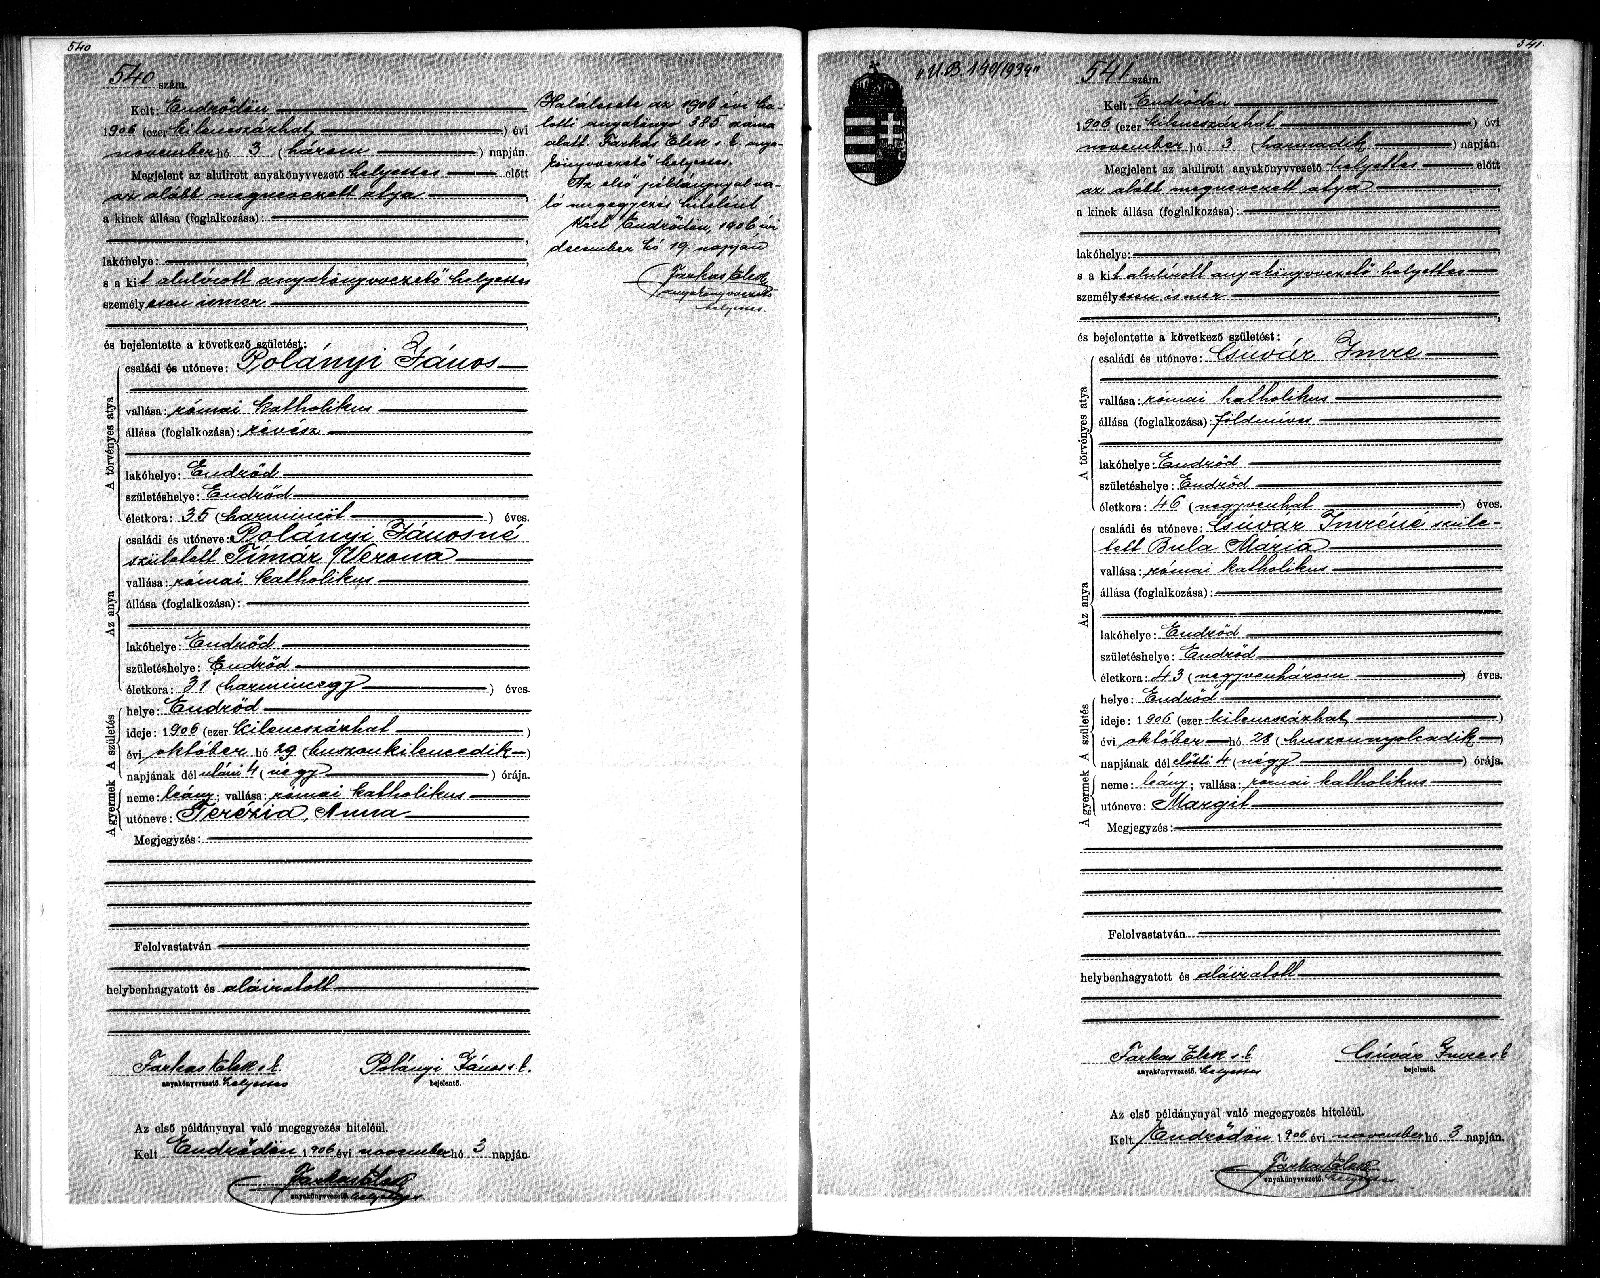 540
540 szám.
Kelt: Endrődön
1906 (ezer kilenczszázhat) évi
november hó 3 (három) napján.
Megjelent az alulirott anyakönyvvezető helyettes előtt
az alább megnevezett atya,
a kinek állása (foglalkozása):
lakóhelye:
s a kit alulírott anyakönyvvezető helyettes
személyesen ismer
és bejelentette a következő születést:
A törvényes atya
családi és utóneve: Polányi János
vallása: római katholikus
állása (foglalkozása): révész
lakóhelye: Endrőd
születéshelye: Endrőd
életkora: 35 (harminczöt) éves.
Az anya
családi és utóneve: Polányi Jánosné
született Tímár Verona
vallása: római katholikus
állása (foglalkozása):
lakóhelye: Endrőd
születéshelye: Endrőd
életkora: 31 (harminczegy) éves.
A születés
helye: Endrőd
ideje: 1906 (ezer kilenczszázhat)
évi október hó 29 (huszonkilenczedik)
napjának dél utáni 4 (négy) órája.
A gyermek
neme: leány; vallása: római katholikus
utóneve: Terézia, Anna
Megjegyzés:
Felolvastatván
helybenhagyatott és aláiratott
Farkas Elek s. k. Polányi János s. k.
anyakönyvvezető. helyettes bejelentő.
Az első példánynyal való megegyezés hiteléül.
Kelt Endrődön 1906 évi november hó 3 napján.
Farkas Elek
anyakönyvvezető. helyettes
Halálesete az 1906 évi ha-
lotti anyakönyv 385 száma
alatt. Farkas Elek s. k. anya-
könyvvezető helyettes.
Az első példánynyal va-
ló megegyezés hiteléül
Kelt Endrődön, 1906 évi
december hó 19. napján
Farkas Elek
anyakönyvvezető
helyettes.
541
541 szám.
Kelt: Endrődön
1906 (ezer kilenczszázhat) évi
november hó 3 (harmadik) napján.
Megjelent az alulirott anyakönyvvezető helyettes előtt
az alább megnevezett atya
a kinek állása (foglalkozása):
lakóhelye:
s a kit alulírott anyakönyvvezető helyettes
személyesen ismer
és bejelentette a következő születést:
A törvényes atya
családi és utóneve: Csúvár Imre
vallása: római katholikus
állása (foglalkozása): földmíves
lakóhelye: Endrőd
születéshelye: Endrőd
életkora: 46 (negyvenhat) éves.
Az anya
családi és utóneve: Csúvár Imréné szüle-
tett Bula Mária
vallása: római katholikus
állása (foglalkozása):
lakóhelye: Endrőd
születéshelye: Endrőd
életkora: 43 (negyvenhárom) éves.
A születés
helye: Endrőd
ideje: 1906 (ezer kilenczszázhat)
évi október hó 28 (huszonnyolczadik)
napjának dél előtti 4 (négy) órája.
A gyermek
neme: leány; vallása: római katholikus
utóneve: Margit
Megjegyzés:
Felolvastatván
helybenhagyatott és aláiratott
Farkas Elek s. k. Csúvár Imre s. k.
anyakönyvvezető. helyettes bejelentő.
Az első példánynyal való megegyezés hiteléül.
Kelt Endrődön 1906 évi november hó 3 napján.
Farkas Elek
anyakönyvvezető. helyettes